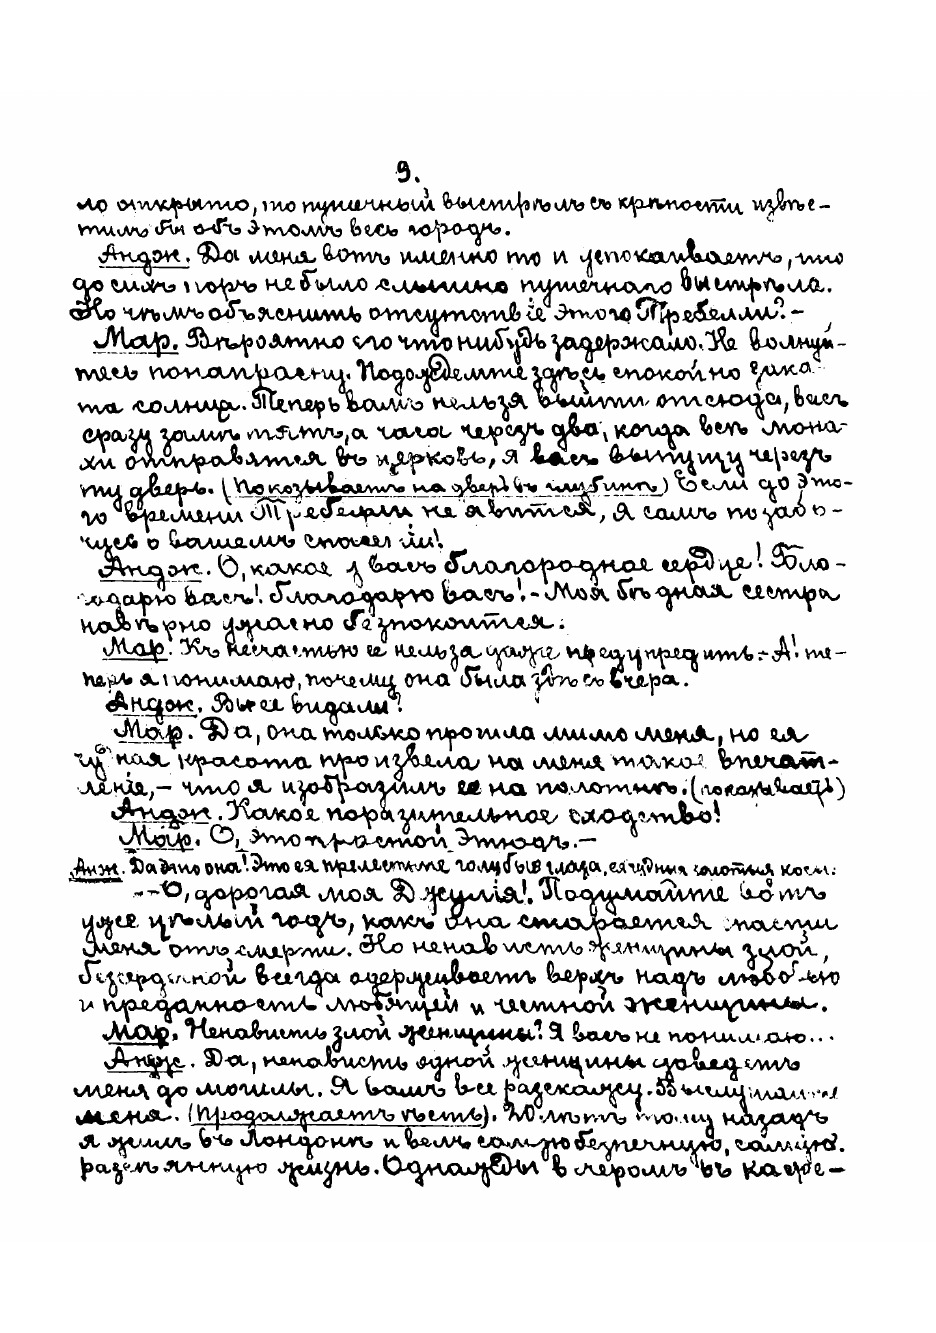 9.
ло открыто, то пушечный выстрѣлъ съ крѣпости извѣс-
тилъ бы объ этомъ весь городъ.
Андж. Да меня вотъ именно то и успокаиваетъ, что
до сихъ поръ не было слышно пушечнаго выстрѣла.
Но чѣмъ объяснить отсутствіе этого Требелли? -
Мар. Вѣроятно его что нибудь задержало. Не волнуй-
тесь понапрасну. Подождемте здѣсь спокойно зака-
та солнца. Теперь вамъ нельзя выйти отсюда, васъ
сразу замѣтятъ, а часа черезъ два, когда всѣ мона-
хи отправятся въ церковь, я васъ выпущу черезъ
ту дверь. (Показываетъ на дверь въ глубинѣ) Если до это-
го времени Требелли не явится, я самъ позабо-
чусь о вашемъ спасеніи!
Андж. О, какое у васъ благородное сердце! Бла-
годарю васъ! Благодарю васъ! - Моя бѣдная сестра
навѣрно ужасно безпокоится.
Мар. Къ несчастью ее нельзя даже предупредить. - А! те-
перь я понимаю, почему она была здѣсь вчера.
Андж. Вы ее видали?
Мар. Да, она только прошла мимо меня, но ея
чудная красота произвела на меня такое впечат-
леніе, - что я изобразилъ ее на полотнѣ. (показываетъ)
Андж. Какое поразительное сходство!
Мар. О, это простой этюдъ. -
Анж. Да это она! Это ея прелестные голубые глаза, ея чудныя золотыя косы.
- О, дорогая моя Джулія! Подумайте вотъ
уже цѣлый годъ, какъ она старается спасти
меня отъ смерти. Но ненависть женщины злой,
безсердечной всегда одерживаетъ верхъ надъ любовью
и преданностью любящей и честной женщины.
Мар. Ненависть злой женщины? Я васъ не понимаю...
Андж. Да, ненависть одной женщины доведетъ
меня до могилы. Я вамъ все разскажу. Выслушайте
меня. (Продолжаетъ ѣсть). лѣтъ тому назадъ
я жилъ въ Лондонѣ и велъ самую безпечную, самую
разсѣянную жизнь. Однажды вечеромъ въ кафе-